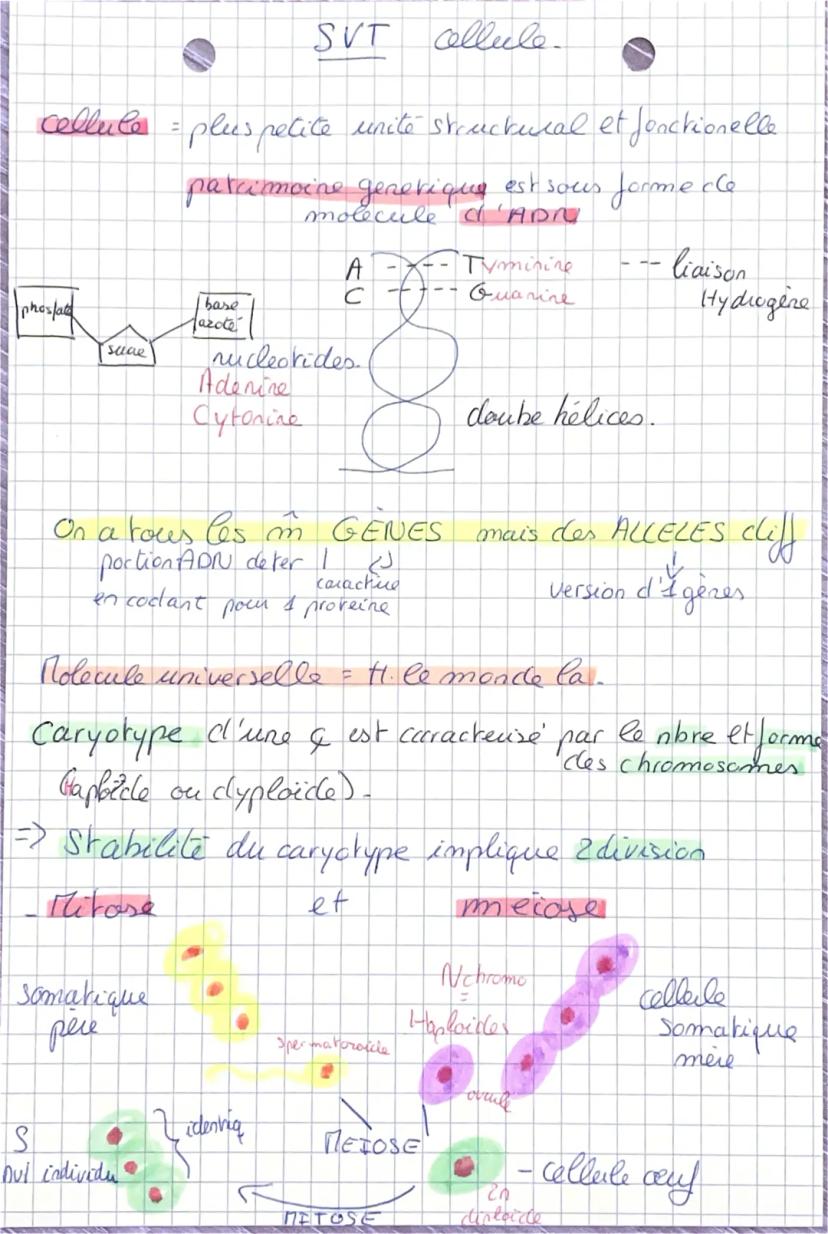 SVT cellule.
cellule = plus petite unité structural et fonctionelle
patrimoine genetique est sous forme de
molécule d'ADN
A --- Tyminine --- liaison
C --- Guanine Hydrogène
phosfate
sucre
base
azoté
nucleotides.
Adenine
Cytonine
doube hélices.
On a tous les m̂ GÈNES mais des ALLELES diff
portion ADN deter 1
caractère
en codant pour 1 proteine
version d'1 gènes
Molecule universelle = tt le monde la.
Caryotype d'une ç est caracterisé par le nbre et forme
des chromosomes
(aploïde ou dyploïde).
=> Stabilité du caryotype implique 2 division
- Mitose et meiose
somatique
père
spermatozoïde
N chromo
=
Haploïdes
ovule
cellule
somatique
mère
MEIOSE
S
nvl individu
identiq
MITOSE
2n
diploïde
- cellule œuf